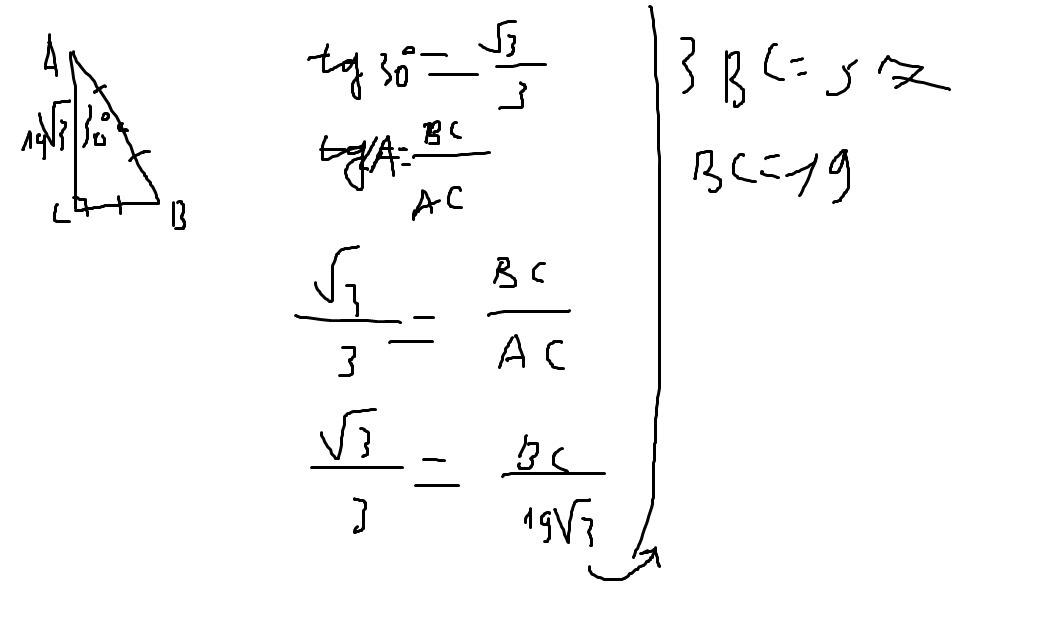 A
19√3 30°
C B
tg 30° = √3/3
tgA = BC/AC
√3/3 = BC/AC
√3/3 = BC/19√3
3 BC = 57
BC = 19